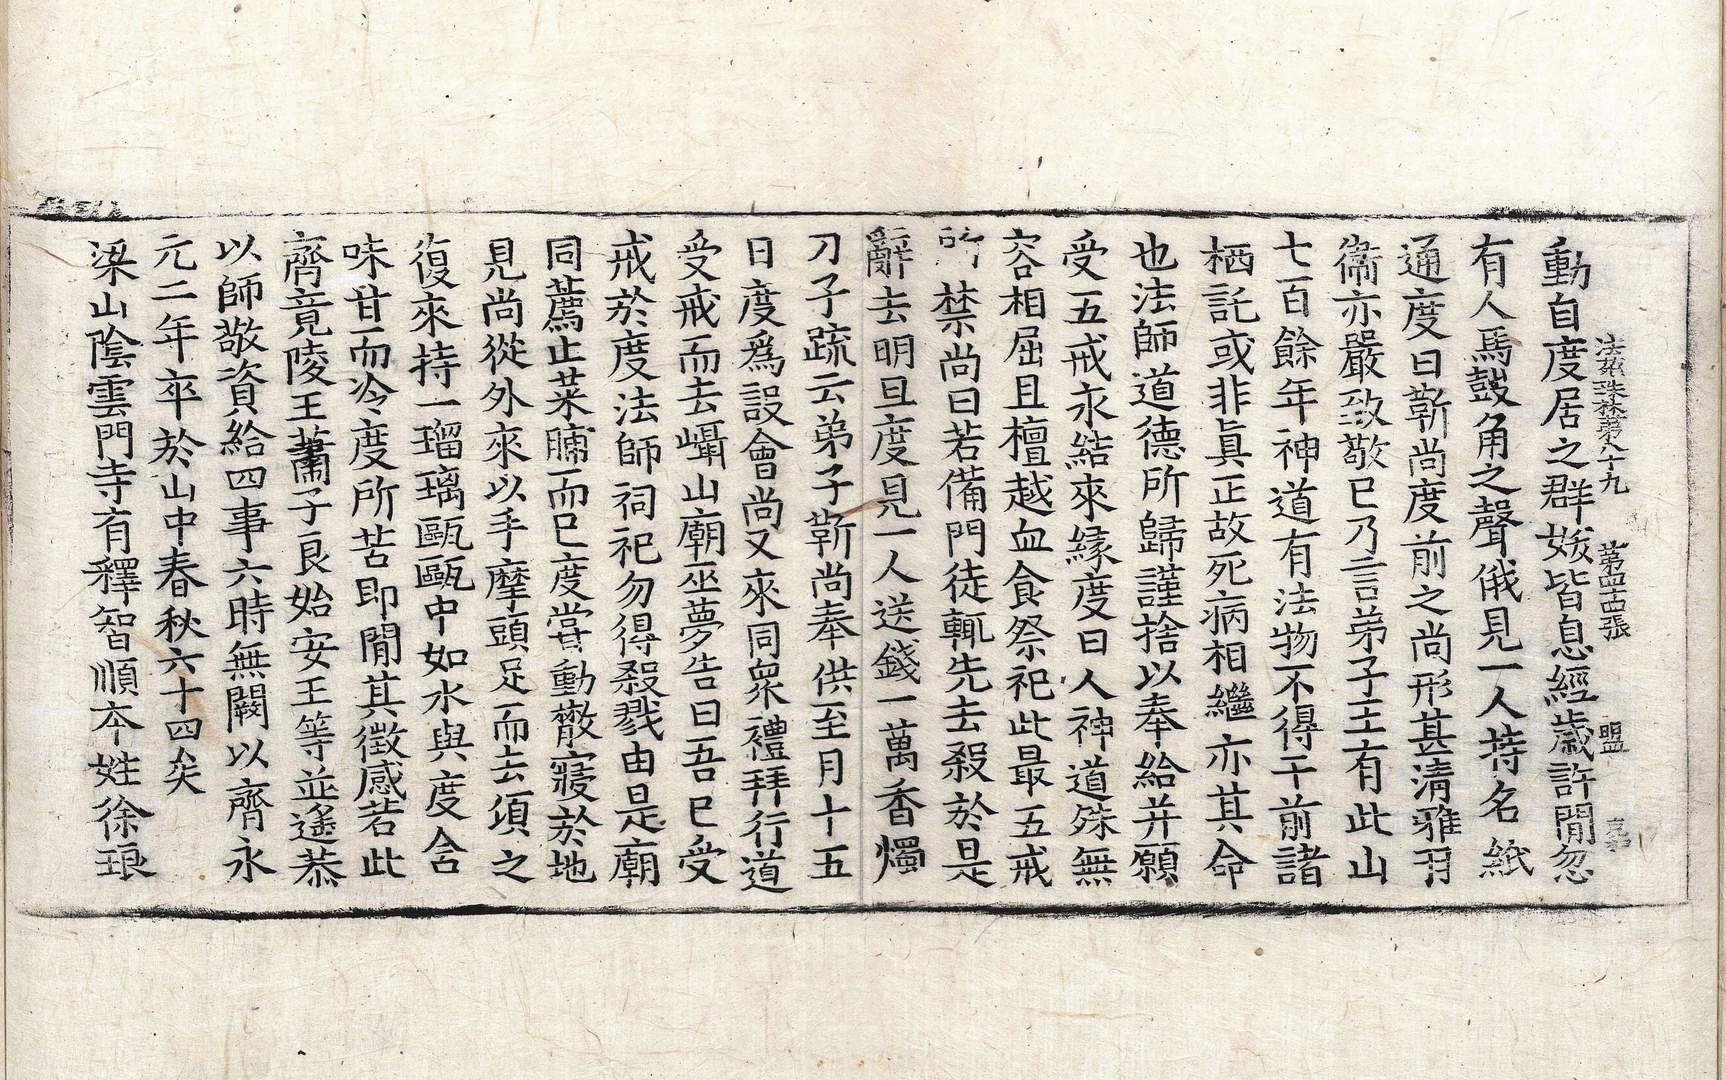 法苑珠林第八十九 第四十四張 盟
動自度居之群妖皆息經歲許閒忽
有人馬鼓角之聲俄見一人持名紙
通度曰靳尚度前之尚形甚清雅羽
衛亦嚴致敬已乃言弟子王有此山
七百餘年神道有法物不得干前諸
栖託或非眞正故死病相繼亦其命
也法師道德所歸謹捨以奉給并願
受五戒永結來緣度曰人神道殊無
容相屈且檀越血食祭祀此最五戒
所禁尚曰若備門徒輒先去殺於是
辭去明旦度見一人送錢一萬香燭
刀子疏云弟子靳尚奉供至月十五
日度爲設會尚又來同衆禮拜行道
受戒而去㠥山廟巫夢告曰吾已受
戒於度法師祠祀勿得殺戮由是廟
同薦止菜脯而已度嘗動散寢於地
見尚從外來以手摩頭足而去須之
復來持一瑠璃甌甌中如水與度含
味甘而冷度所苦即閒其徵感若此
齊竟陵王蕭子良始安王等並遙恭
以師敬資給四事六時無闕以齊永
元二年卒於山中春秋六十四矣
梁山陰雲門寺有釋智順本姓徐琅